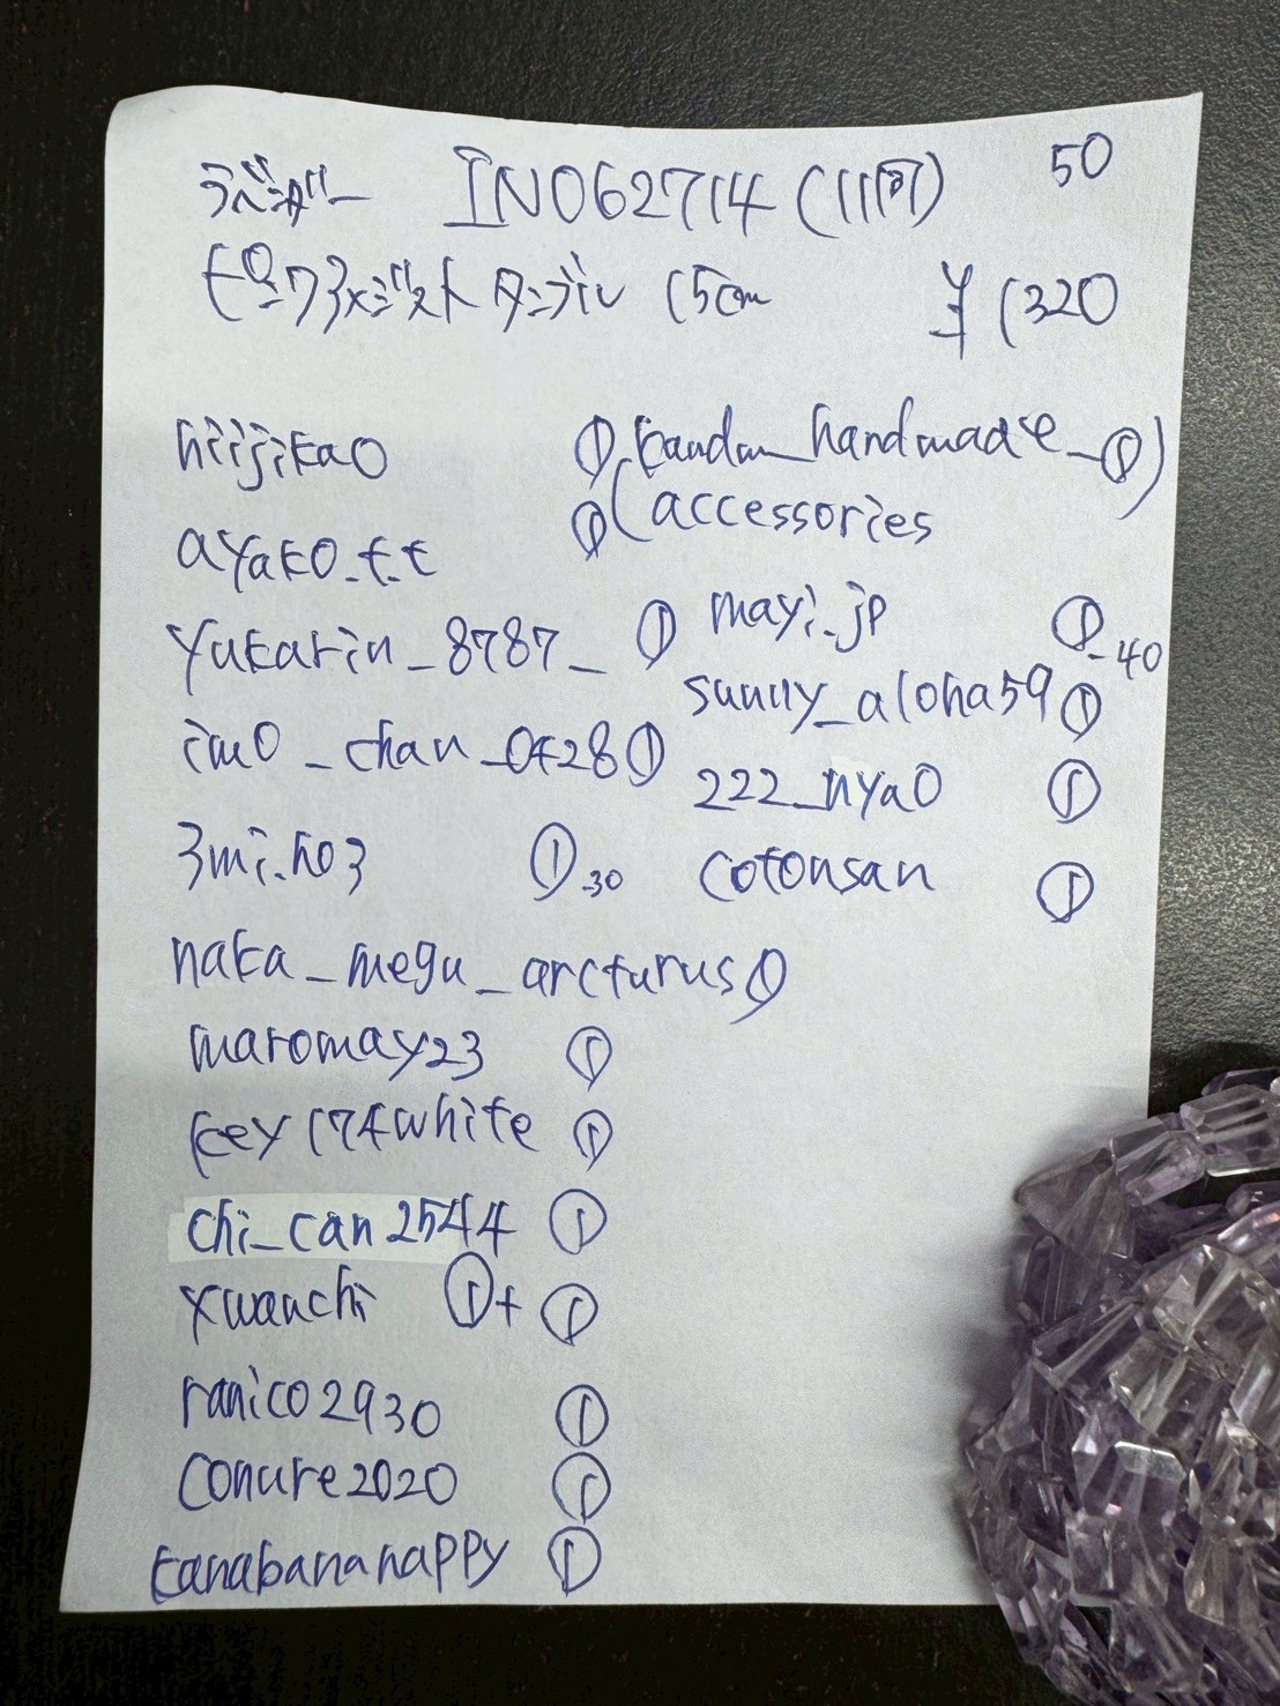 ラベンダー IN062714 (11同) 50
ピンクアメジスト タンブル 15cm ¥1320
hiijikao ①
ayako_t.t ①
yukarin_8787_ ①
imo_chan_0428 ①
3mi.ho3 ① -30
naka_megu_arcturus ①
maromay23 ①
key174white ①
chi_can2544 ①
xwanchi ①+①
ranico2930 ①
conure2020 ①
tanabananappy ①
_handmade_ ①
(accessories)
mayi.jp ① -40
sunny_aloha59 ①
222_nyao ①
cotonsan ①